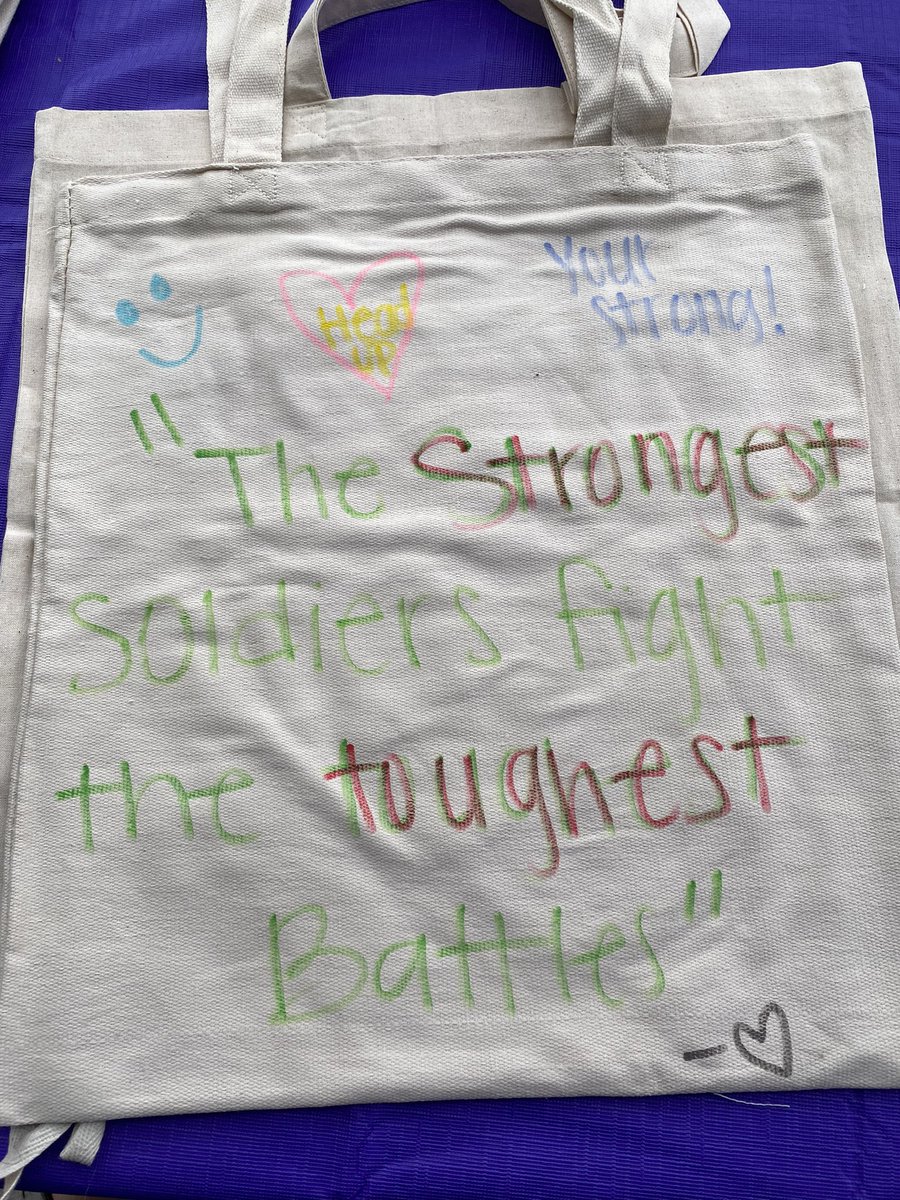 Head
up
Your
strong!
"The Strongest
Soldiers fight
the toughest
Battles"